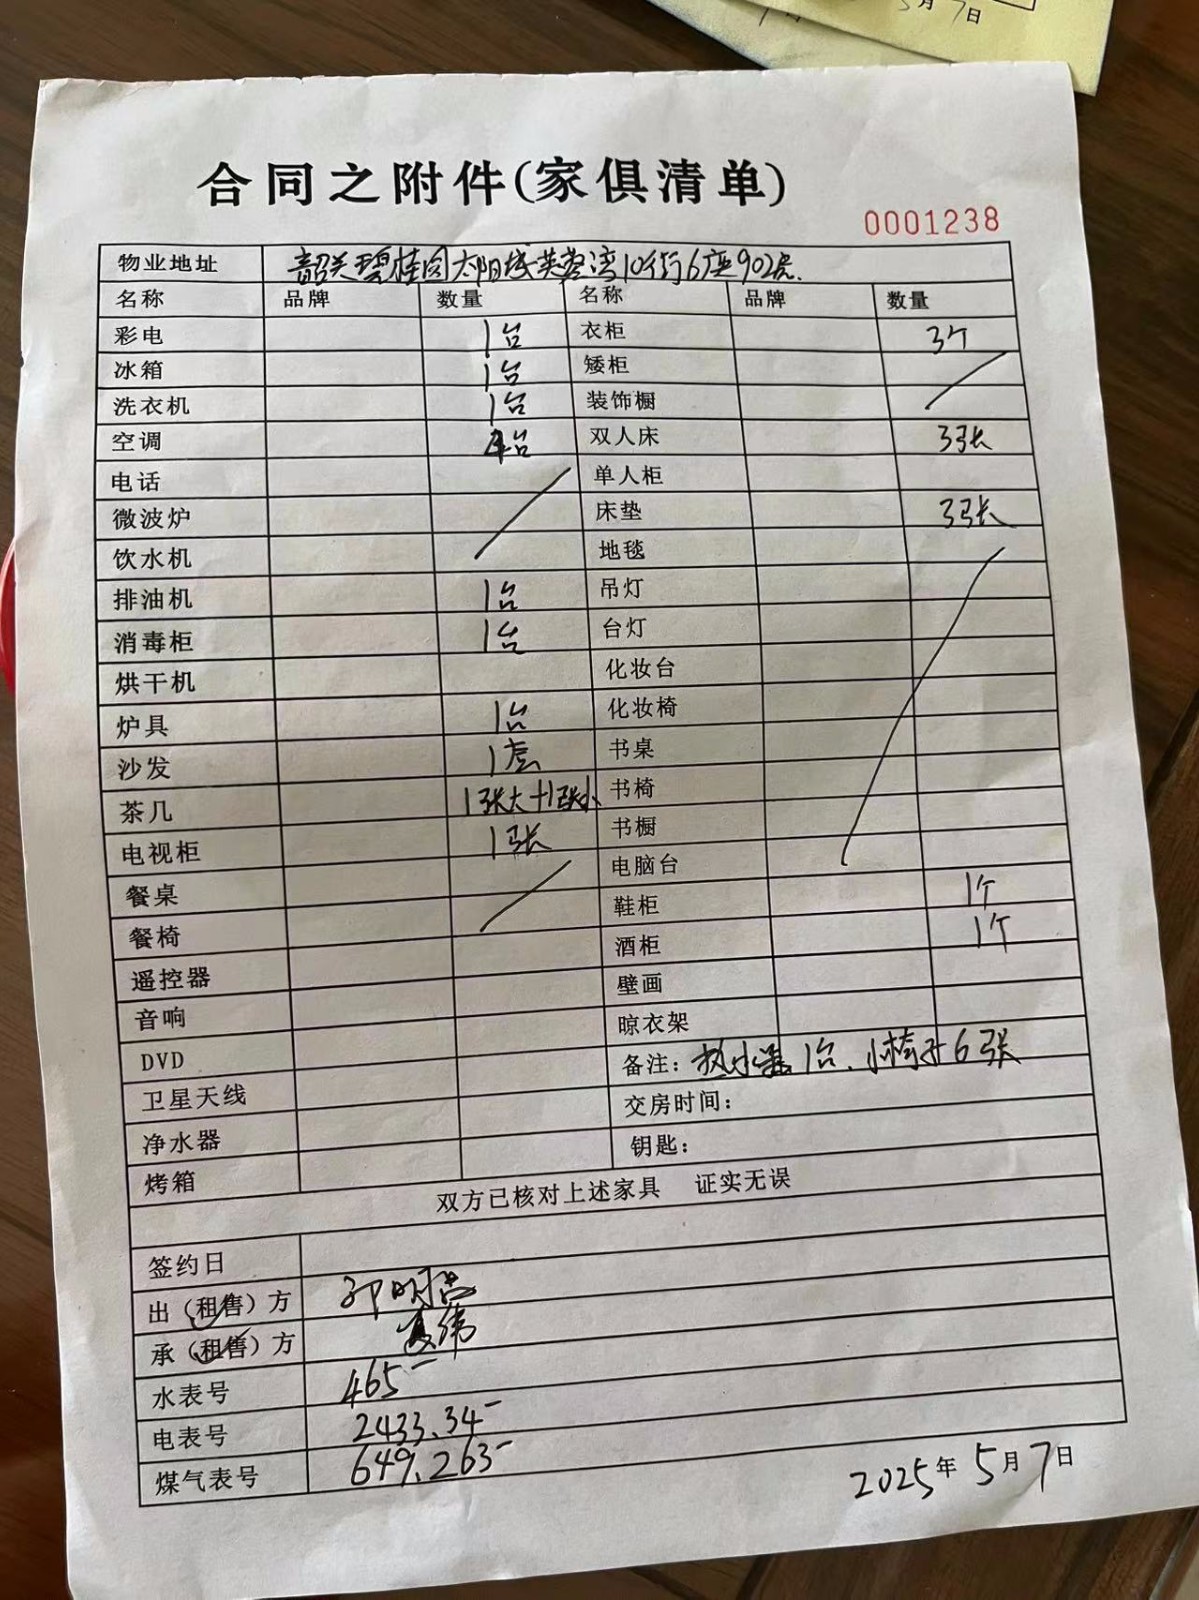 月7日
合同之附件(家俱清单)
0001238
物业地址 韶关碧桂园太阳城芙蓉湾10街6座902房.
名称 品牌 数量 名称 品牌 数量
彩电 1台 衣柜 3个
冰箱 1台 矮柜
洗衣机 1台 装饰橱
空调 4台 双人床 3张
电话 单人柜
微波炉 床垫 3张
饮水机 地毯
排油机 1台 吊灯
消毒柜 1台 台灯
烘干机 化妆台
炉具 1台 化妆椅
沙发 1套 书桌
茶几 1张大+1张小 书椅
电视柜 1张 书橱
餐桌 电脑台
餐椅 鞋柜 1个
遥控器 酒柜 1个
音响 壁画
DVD 晾衣架
卫星天线 备注：热水器1台、小椅子6张
净水器 交房时间：
烤箱 钥匙：
双方已核对上述家具 证实无误
签约日
出（租售）方
承（租售）方
水表号 465
电表号 2433.34
煤气表号 649.263
2025年5月7日